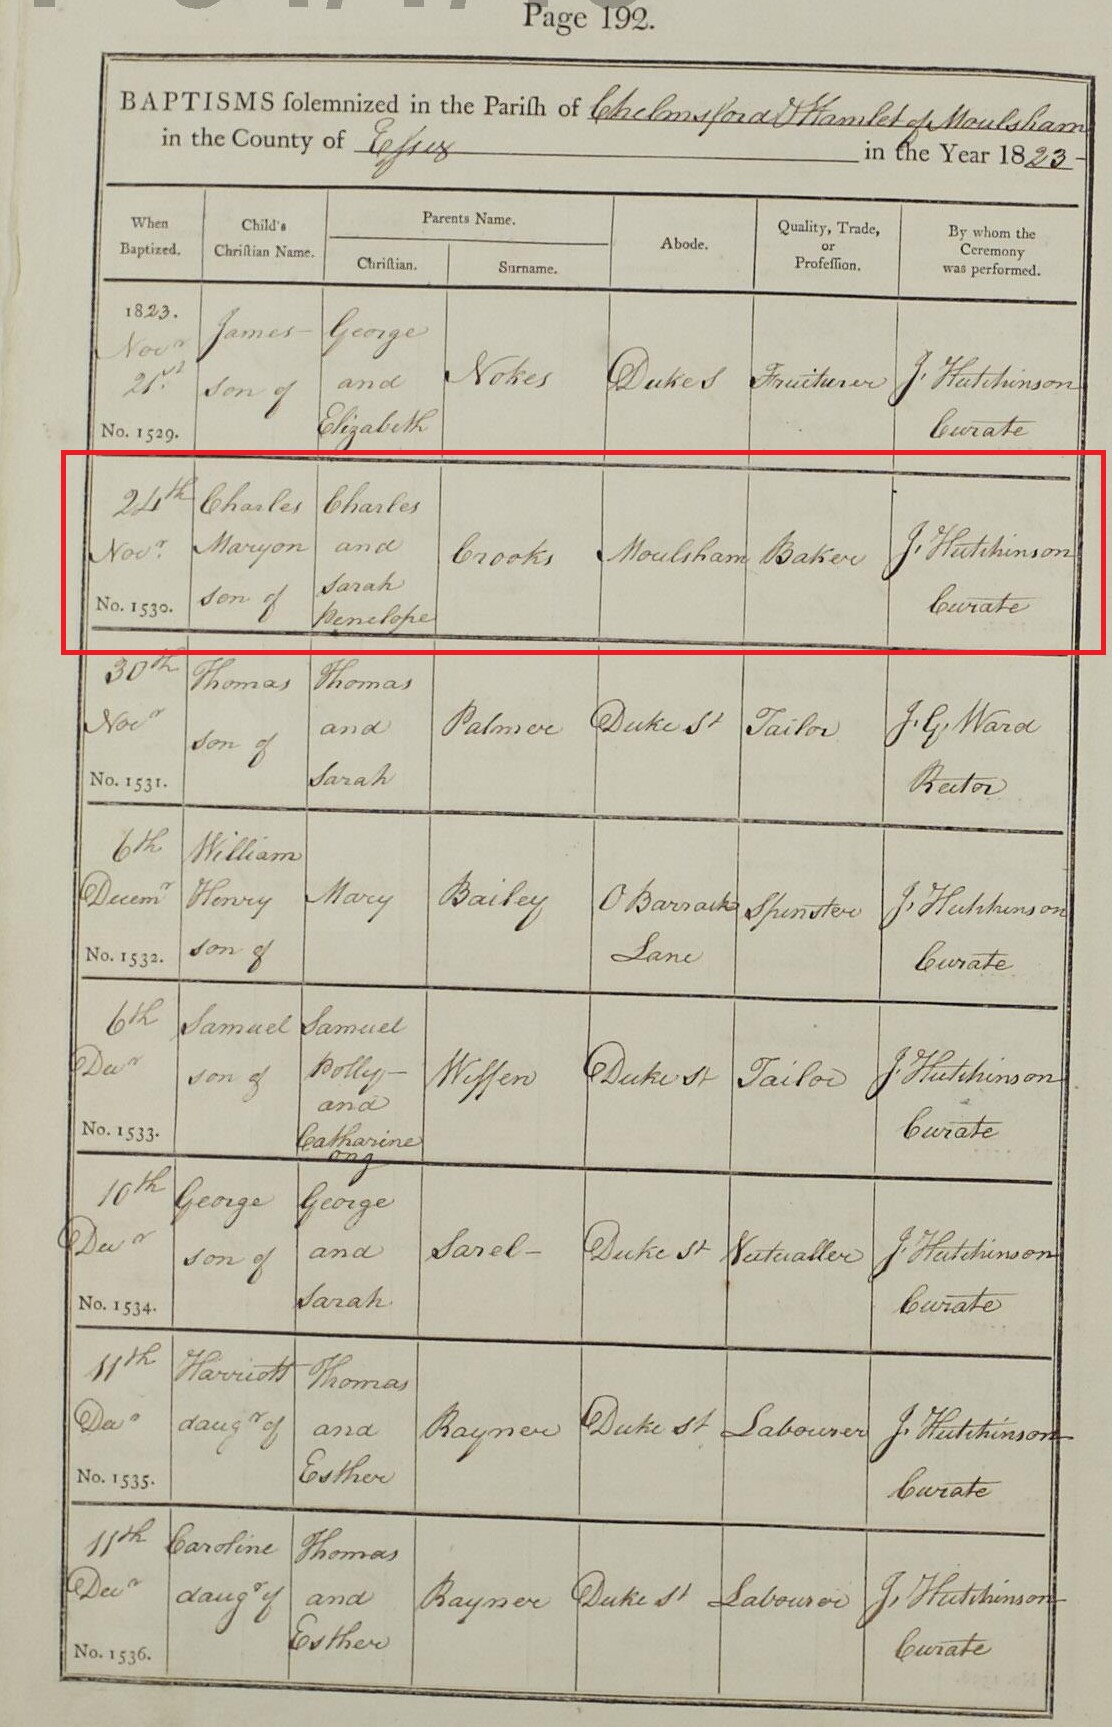 Page 192.
BAPTISMS solemnized in the Parish of Chelmsford & Hamlet of Moulsham
in the County of Essex in the Year 1823-
When Baptized. Child's Christian Name. Parents Name. Christian. Surname. Abode. Quality, Trade, or Profession. By whom the Ceremony was performed.
1823.
Novr
21st
No. 1529.
James-
son of
George
and
Elizabeth
Nokes
Duke S
Fruiturer
J. Hutchinson
Curate
24th
Novr.
No. 1530.
Charles
Maryon
son of
Charles
and
Sarah
Penelope
Crooks
Moulsham
Baker
J. Hutchinson
Curate
30th
Novr
No. 1531.
Thomas
son of
Thomas
and
Sarah
Palmer
Duke St
Tailor
J. G. Ward
Rector
6th
Decemr
No. 1532.
William
Henry
son of
Mary
Bailey
O Barrack
Lane
Spinster
J. Hutchinson
Curate
6th
Decr
No. 1533.
Samuel
son of
Samuel
Polly-
and
Catharine
ong
Wiffen
Duke St
Tailor
J. Hutchinson
Curate
10th
Decr
No. 1534.
George
son of
George
and
Sarah.
Sarel-
Duke St
Victualler
J. Hutchinson
Curate
11th
Decr
No. 1535.
Harriott
daugr of
Thomas
and
Esther
Rayner
Duke St
Labourer
J. Hutchinson
Curate
11th
Decr
No. 1536.
Caroline
daugr of
Thomas
and
Esther
Rayner
Duke St
Labourer
J. Hutchinson
Curate